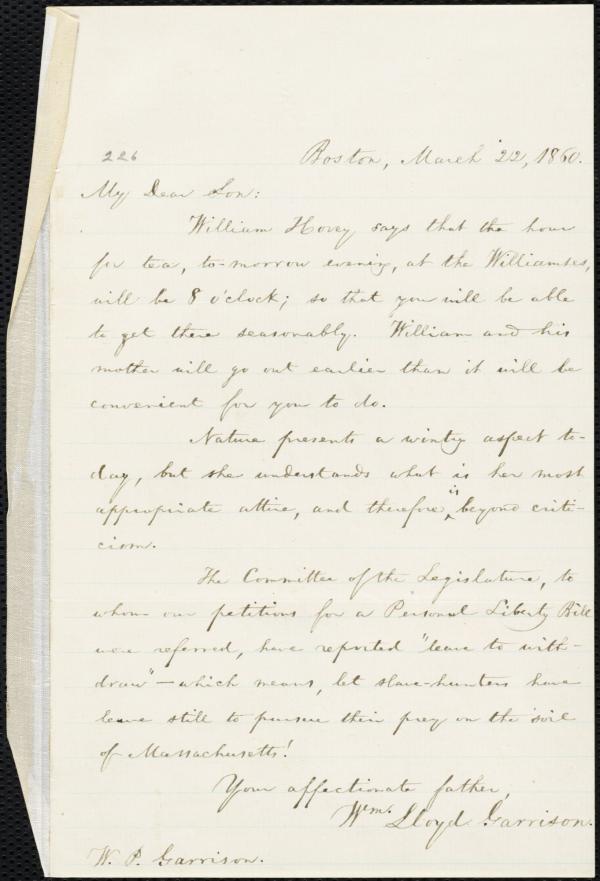 226
Boston, March 22, 1860.
My Dear Son:
William Hovey says that the hour
for tea, to-morrow evening, at the Williamses,
will be 8 o'clock; so that you will be able
to get there seasonably. William and his
mother will go out earlier than it will be
convenient for you to do.
Nature presents a wintry aspect to-
day, but she understands what is her most
appropriate attire, and therefore is beyond criti-
cism.
The Committee of the Legislature, to
whom our petitions for a Personal Liberty Bill
were referred, have reported "leave to with-
draw"—which means, let slave-hunters have
leave still to pursue their prey on the soil
of Massachusetts!
Your affectionate father,
Wm. Lloyd Garrison.
W. P. Garrison.